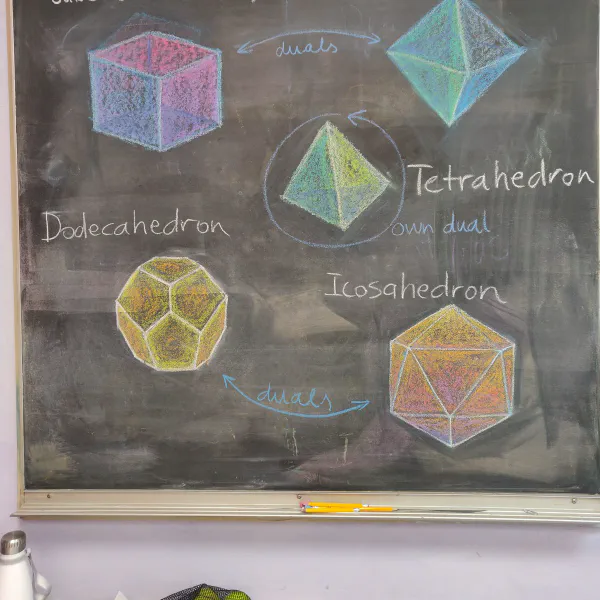 duals
Tetrahedron
own dual
Dodecahedron
Icosahedron
duals